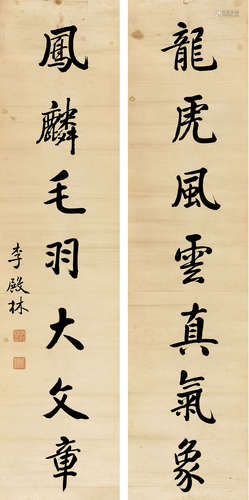 龍虎風雲真氣象
鳳麟毛羽大文章
李殿林